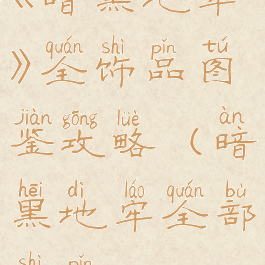 《暗黑地牢
》全饰品图
quán shì pǐn tú
鉴攻略（暗
jiàn gōng lüè àn
黑地牢全部
hēi dì láo quán bù
shì pǐn